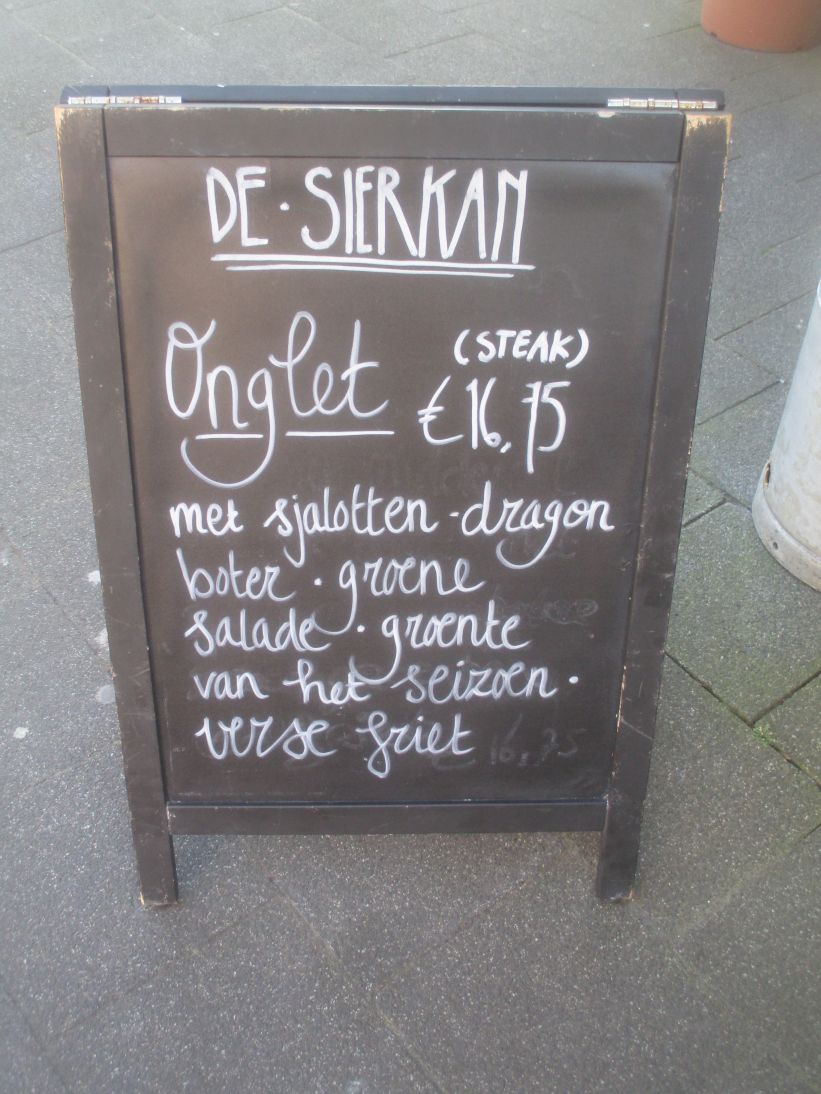 DE · SIERKAN
Onglet (STEAK)
€16,75
met sjalotten - dragon
boter · groene
salade · groente
van het seizoen ·
verse friet
16,75